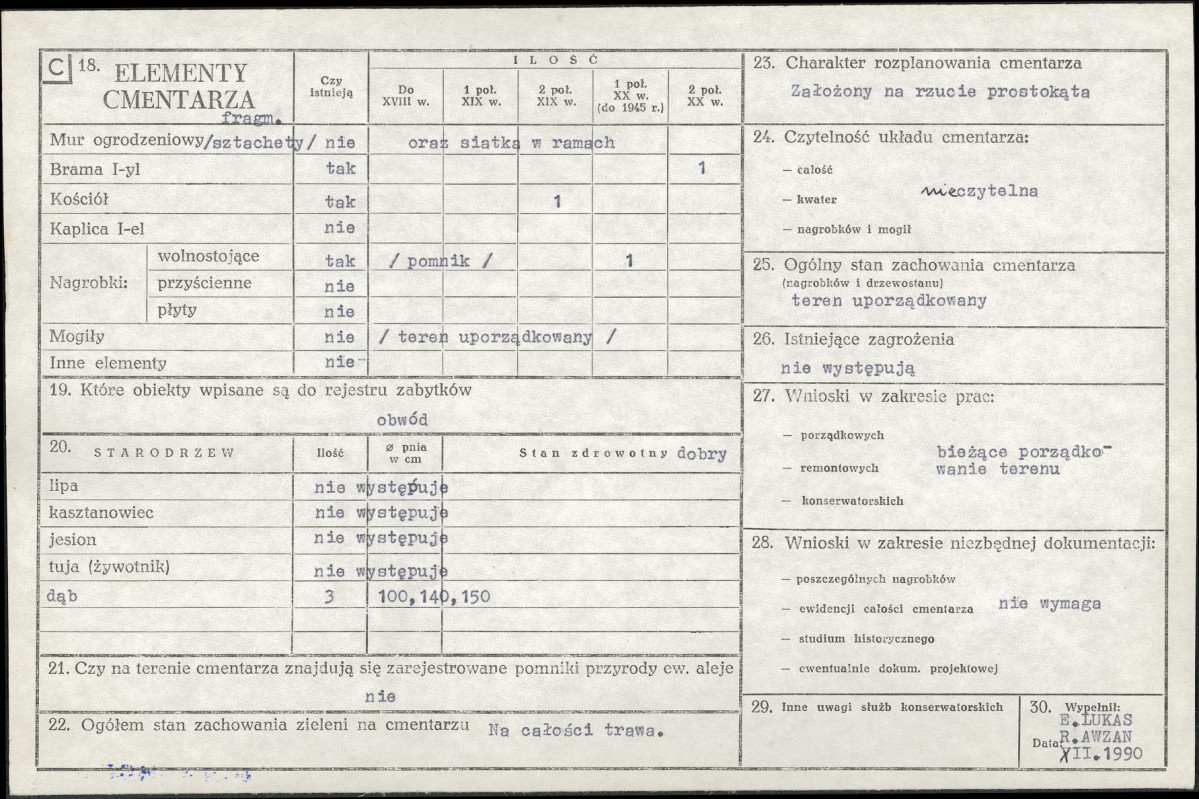 C 18. ELEMENTY CMENTARZA
fragm.
Czy istnieją
ILOŚĆ
Do XVIII w.
1 poł. XIX w.
2 poł. XIX w.
1 poł. XX w. (do 1945 r.)
2 poł. XX w.
Mur ogrodzeniowy /sztachety/ nie oraz siatka w ramach
Brama I-yl tak 1
Kościół tak 1
Kaplica I-el nie
Nagrobki:
wolnostojące tak / pomnik / 1
przyścienne nie
płyty nie
Mogiły nie / teren uporządkowany /
Inne elementy nie
19. Które obiekty wpisane są do rejestru zabytków
obwód
20. STARODRZEW Ilość ø pnia w cm Stan zdrowotny dobry
lipa nie występuje
kasztanowiec nie występuje
jesion nie występuje
tuja (żywotnik) nie występuje
dąb 3 100,140,150
21. Czy na terenie cmentarza znajdują się zarejestrowane pomniki przyrody ew. aleje
nie
22. Ogółem stan zachowania zieleni na cmentarzu Na całości trawa.
23. Charakter rozplanowania cmentarza
Założony na rzucie prostokąta
24. Czytelność układu cmentarza:
— całość
— kwater nieczytelna
— nagrobków i mogił
25. Ogólny stan zachowania cmentarza
(nagrobków i drzewostanu)
teren uporządkowany
26. Istniejące zagrożenia
nie występują
27. Wnioski w zakresie prac:
— porządkowych
bieżące porządko-
— remontowych wanie terenu
— konserwatorskich
28. Wnioski w zakresie niezbędnej dokumentacji:
— poszczególnych nagrobków
— ewidencji całości cmentarza nie wymaga
— studium historycznego
— ewentualnie dokum. projektowej
29. Inne uwagi służb konserwatorskich
30. Wypełnił:
E.ŁUKAS
R.AWZAN
Data: XII.1990